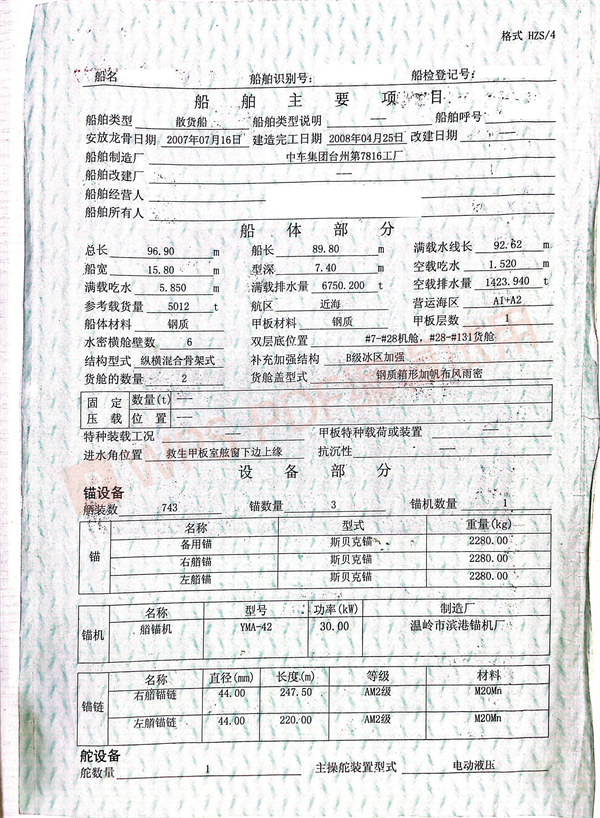 格式 HZS/4
船名 船舶识别号: 船检登记号:
船舶主要项目
船舶类型 散货船 船舶类型说明 --- 船舶呼号
安放龙骨日期 2007年07月16日 建造完工日期 2008年04月25日 改建日期 ---
船舶制造厂 中车集团台州第7816工厂
船舶改建厂 ---
船舶经营人
船舶所有人
船体部分
总长 96.90 m 船长 89.80 m 满载水线长 92.62 m
船宽 15.80 m 型深 7.40 m 空载吃水 1.520 m
满载吃水 5.850 m 满载排水量 6750.200 t 空载排水量 1423.940 t
参考载货量 5012 t 航区 近海 营运海区 A1+A2
船体材料 钢质 甲板材料 钢质 甲板层数 1
水密横舱壁数 6 双层底位置 #7-#28机舱, #28-#131货舱
结构型式 纵横混合骨架式 补充加强结构 B级冰区加强
货舱的数量 2 货舱盖型式 钢质箱形加帆布风雨密
固定 数量(t) ---
压载 位置 ---
特种装载工况 --- 甲板特种载荷或装置 ---
进水角位置 救生甲板室舷窗下边上缘 抗沉性 ---
设备部分
锚设备
舾装数 743 锚数量 3 锚机数量 1
锚 名称 型式 重量(kg)
备用锚 斯贝克锚 2280.00
右艏锚 斯贝克锚 2280.00
左艏锚 斯贝克锚 2280.00
锚机 名称 型号 功率(kW) 制造厂
艏锚机 YMA-42 30.00 温岭市滨港锚机厂
锚链 名称 直径(mm) 长度(m) 等级 材料
右艏锚链 44.00 247.50 AM2级 M20Mn
左艏锚链 44.00 220.00 AM2级 M20Mn
舵设备
舵数量 1 主操舵装置型式 电动液压